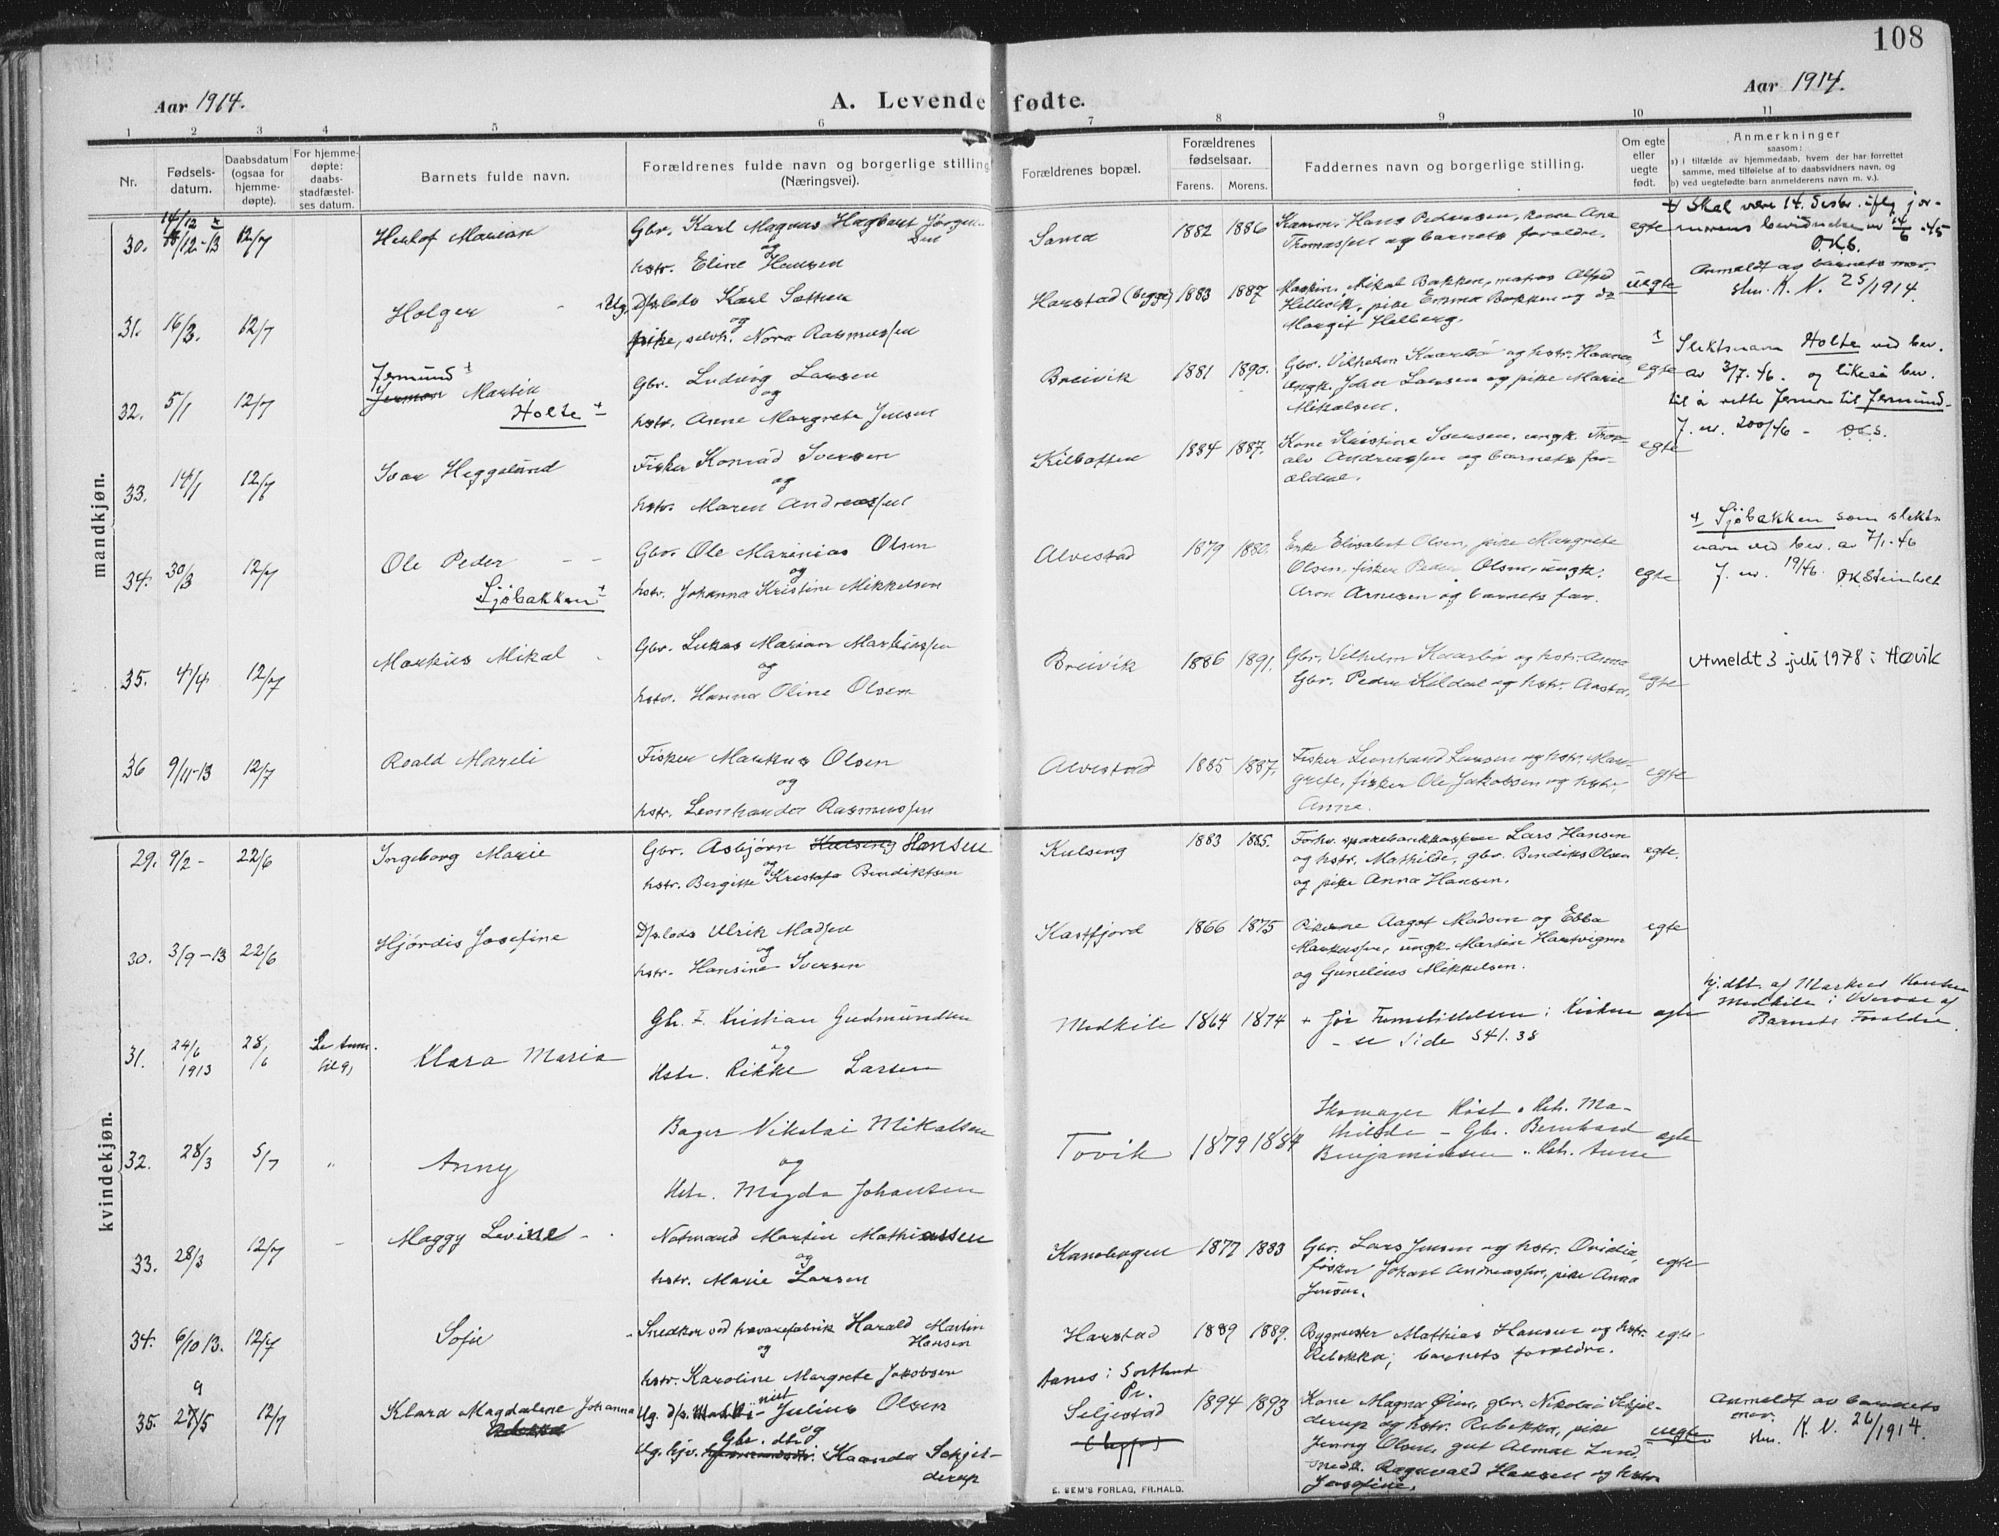 108
Aar 1914.
A. Levende fødte.
Aar 1914.
1 2 3 4 5 6 7 8 9 10 11
Nr.
Fødsels-
datum.
Daabsdatum
(ogsaa for
hjemme-
døpte).
For hjemme-
døpte:
daabs-
stadfæstel-
ses datum.
Barnets fulde navn.
Forældrenes fulde navn og borgerlige stilling
(Næringsvei).
Forældrenes bopæl.
Forældrenes
fødselsaar.
Farens. Morens.
Faddernes navn og borgerlige stilling.
Om egte
eller
uegte
født.
Anmerkninger
saasom:
a) i tilfælde av hjemmedaab, hvem der har forrettet
samme, med tilføielse af to daabsvidners navn, og
b) ved uegtefødte barn anmelderens navn m. v.).
mandkjøn.
30. 14/12 x
/12-13 12/7 Herlof Marian
Gbr. Karl Magnus Hagbart Jørgen-
sen
og
hstr. Eline Hansen
Sama 1882 1886
Hans Pedersen, kone Ane
Thomassen og barnets forældre.
egte
x Skal være 14. Desbr. iflg. jor-
morens bevidnelse nr 14/6 -45
O.K.S.
31. 16/3. 12/7 Holger - Ug.
D/slods Karl Sætten
og
pike, selvh. Nora Rasmussen
Harstad (begge) 1883 1887
Maskin. Mikal Bakken, matros Alfred
Hellvik, pike Emma Bakken og do
Margit Helberg.
uegte
Anmeldt av barnets mor.
skr. K. N. 25/1914.
32. 5/1 12/7 Jermund x
Jermon Martin
Holte x
Gbr. Ludvig Larsen
og
hstr. Anne Margrete Jensen
Breivik 1881 1890.
Gbr. Vilhelm Kaarbø og hstr. Hanna
ungk. Johan Larsen og pike Marie
Mikalsen.
egte
x
Slektsnavn Holte ved bev.
av 3/7. 46. og likeså bev.
til å rette Jermon til Jermund-
J. nr. 200/46 - O.K.S.
33. 14/1 12/7 Ivar Heggelund
Fisker Konrad Iversen
og
hstr. Maren Andreassen
Kilbotten 1884 1887.
Kone Kristine Iversen, ungk. Thor-
alv Andreassen og barnets for-
ældre.
egte
34. 30/3 12/7 Ole Peder - -
Sjöbakken x
Gbr. Ole Marinius Olsen
og
hstr. Johanna Kristine Mikkelsen
Alvestad 1879 1880.
Enke Elisabert Olsen, pike Margrete
Olsen, fisker Peder Olsen, ungk.
Aron Arnesen og barnets far.
egte
x Sjöbakken som slekts-
navn ved bev. av 7/1-46
J. nr. 19/46. OKSteinholt
35. 4/4 12/7 Markus Mikal -
Gbr. Lukas Marian Markussen
og
hstr. Hanna Oline Olsen
Breivik 1886 1891.
Gbr. Vilhelm Kaarbø og hstr. Anna
Gbr. Peder Kildal og hstr. Aasta.
egte
Utmeldt 3 juli 1978 i Høvik
36 9/11-13 12/7 Roald Mareli
Fisker Markus Olsen
og
hstr. Leonharda Rasmussen
Alvestad 1885 1887.
Fisker Leonhard Larsen og hstr. Mar-
grete, fisker Ole Jakobsen og hstr.
Anna.
egte
kvindekjøn.
29. 9/2 - 22/6 Ingeborg Marie
Gbr. Asbjørn Kulseng Hansen
og
hstr. Bergitte Krestofa Bendiktsen
Kulseng 1883 1885.
Forhv. sparebankkasserer Lars Hansen
og hstr. Mathilde, gbr. Bendiks Olsen
og pike Anna Hansen.
egte.
30. 3/9-13 22/6 Hjördis Josefine
D/slods Ulrik Madsen
og
hstr. Hansine Iversen
Kastfjord 1866 1875
Pikerne Aagot Madsen og Ebba
Markussen, ungk. Martin Hartvigsen
og Gunelius Mikkelsen.
egte
31. 24/6
1913 28/6 Se Anm. Klara Maria
Gbr. F. Kristian Gudmundsen
og
Hstr. Rikke Larsen
Medkile 1864 1874
+ for Fremstillelsen i Kirken
- se Side 541.38
egte
hj.dbt. af Markus Hansen
Medkile i Nærvær af
Barnets Forældre
32. 28/3 5/7 " Anny
Bager Nikolai Mikalsen
og
Hstr. Magda Johansen
Tovik 1879 1884
Skomager Høst, Hstr. Ma-
thilde - Gbr. Bernhard
Benjaminsen, Hstr. Anne
egte
33. 28/3 12/7 - Maggy Levine - -
Notmand Martin Mathiassen
og
hstr. Marie Larsen
Kanebogen 1877 1883
Gbr. Lars Jensen og hstr. Ovidia,
fisker Johart Andreassen, pike Anna
Jensen.
egte
34. 6/10 13. 12/7 Sofie -
Snedker ved trævarefabrik Harald Martin
Hansen
og
hstr. Karoline Margrete Jakobsen
Harstad 1889 1889.
Bygmester Mathias Hansen og hstr.
Rebekka, barnets forældre.
egte
35. 27/5 12/7 Klara Magdalene Johanna
Ug. d/s. Julius Olsen
Gbr. dtr og
Ug. hjv. Kaanda Schjel-
derup
Aanes i Sortland
Pr.
Seljestad
(begge)
1894 1893
Kone Magna Øien, gbr. Nikolai Schjel-
derup og hstr. Rebekka, pike
Jenny Olsen, gut Almar Lund,
snedk. Ragnvald Hansen og hstr.
Josefine.
uegte
Anmeldt av barnets
mor.
skr. K. N. 26/1914.
E. SEM'S FORLAG, FR.HALD.